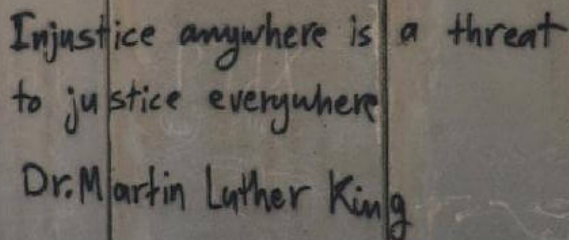 Injustice anywhere is a threat
to justice everywhere
Dr. Martin Luther King